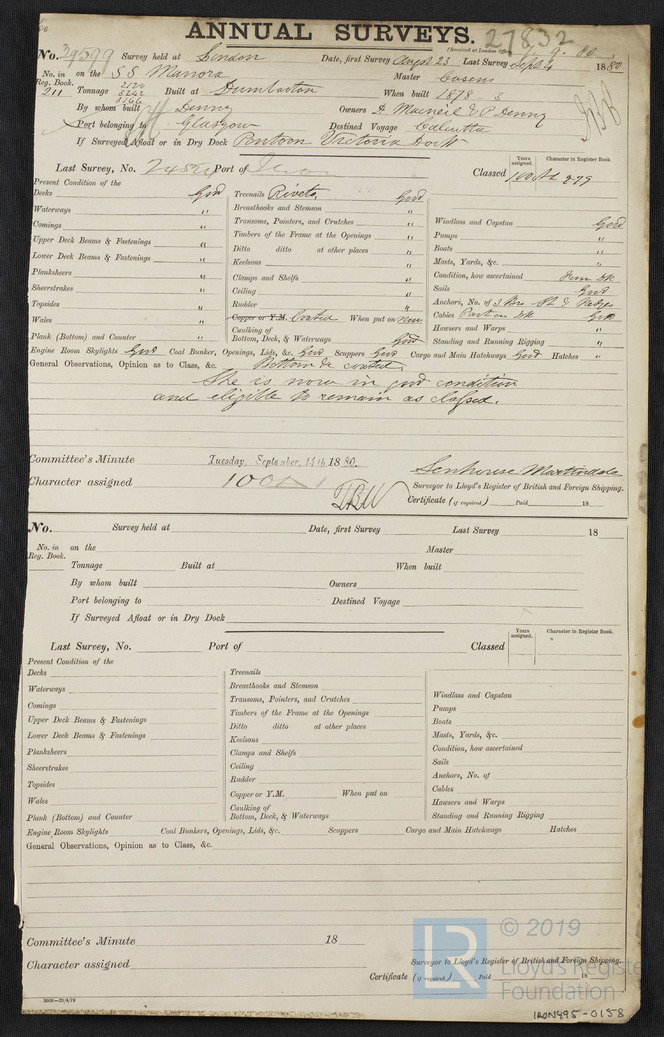 ANNUAL SURVEYS.
27832
(Received at London Office 9. 80
No. 39579 Survey held at London Date, first Survey Augst 23 Last Survey Sept 4 1880
No. in Reg. Book. 211 on the SS Manora Master Cosens
Tonnage 2120 3242 3166 Built at Dumbarton When built 1878 3
By whom built Denny Owners D. Macneil & P Denny
Port belonging to Glasgow Destined Voyage Calcutta
If Surveyed Afloat or in Dry Dock Pontoon Victoria Dock
Last Survey, No. Port of Classed 100A1 Years assigned. Character in Register Book.
Present Condition of the
Decks Good Treenails Rivets Good
Waterways " Breasthooks and Stemson "
Comings " Transoms, Pointers, and Crutches " Windlass and Capstan Good
Upper Deck Beams & Fastenings " Timbers of the Frame at the Openings " Pumps "
Lower Deck Beams & Fastenings " Ditto ditto at other places " Boats "
Planksheers " Keelsons " Masts, Yards, &c. "
Sheerstrakes " Clamps and Shelfs " Condition, how ascertained from Dk
Topsides " Ceiling " Sails Good
Wales " Rudder " Anchors, No. of 3 Brs St &
Plank (Bottom) and Counter " Copper or Y.M. Coated When put on now Cables Part on Dk Good
Caulking of Bottom, Deck, & Waterways Good Hawsers and Warps "
Standing and Running Rigging "
Engine Room Skylights Good Coal Bunker, Openings, Lids, &c. Good Scuppers Good Cargo and Main Hatchways Good Hatches "
General Observations, Opinion as to Class, &c. Bottom & coated.
She is now in good condition
and eligible to remain as classed.
Committee's Minute Tuesday, September, 14th 1880.
Character assigned 100A1
Senhouse Martindale
Surveyor to Lloyd's Register of British and Foreign Shipping.
Certificate (if required) Paid 18
No. Survey held at Date, first Survey Last Survey 18
No. in Reg. Book. on the Master
Tonnage Built at When built
By whom built Owners
Port belonging to Destined Voyage
If Surveyed Afloat or in Dry Dock
Last Survey, No. Port of Classed Years assigned. Character in Register Book.
Present Condition of the
Decks Treenails
Waterways Breasthooks and Stemson Windlass and Capstan
Comings Transoms, Pointers, and Crutches Pumps
Upper Deck Beams & Fastenings Timbers of the Frame at the Openings Boats
Lower Deck Beams & Fastenings Ditto ditto at other places Masts, Yards, &c.
Planksheers Keelsons Condition, how ascertained
Sheerstrakes Clamps and Shelfs Sails
Topsides Ceiling Anchors, No. of
Wales Rudder Cables
Plank (Bottom) and Counter Copper or Y.M. When put on Hawsers and Warps
Caulking of Bottom, Deck, & Waterways Standing and Running Rigging
Engine Room Skylights Coal Bunkers, Openings, Lids, &c. Scuppers Cargo and Main Hatchways Hatches
General Observations, Opinion as to Class, &c.
Committee's Minute 18
Character assigned
Surveyor to Lloyd's Register of British and Foreign Shipping.
Certificate (if required) Paid 18
3000—29/4/79
LR © 2019
Lloyd's Register
Foundation
IRON495-0158